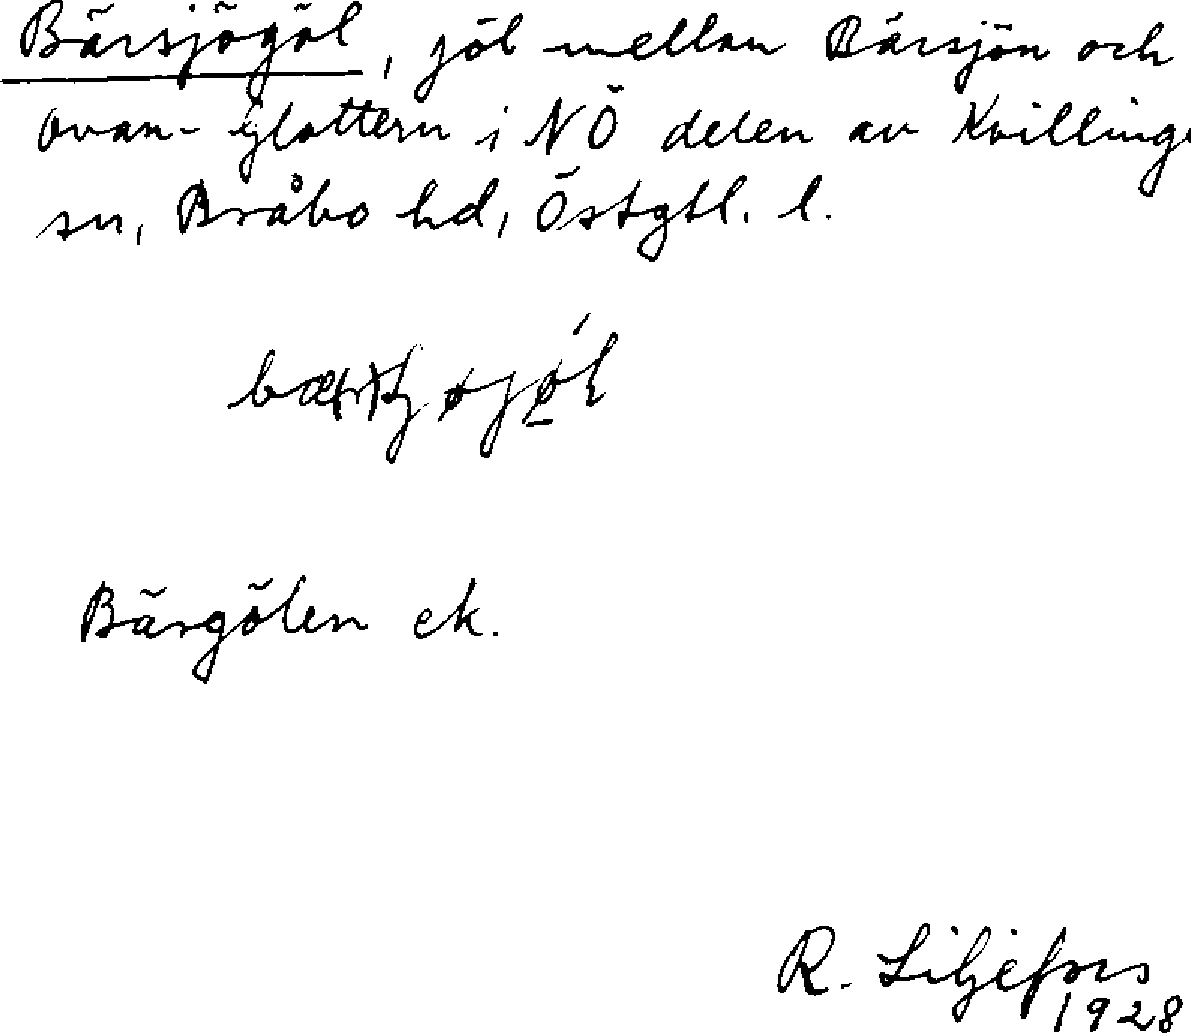 Bärsjögöl, göl mellan Bärsjön och
Ovan-Glottern i NÖ delen av Kvillinge
sn, Bråbo hd, Östgtl. l.
Bärgölen ek.
R. Liljefors
1928